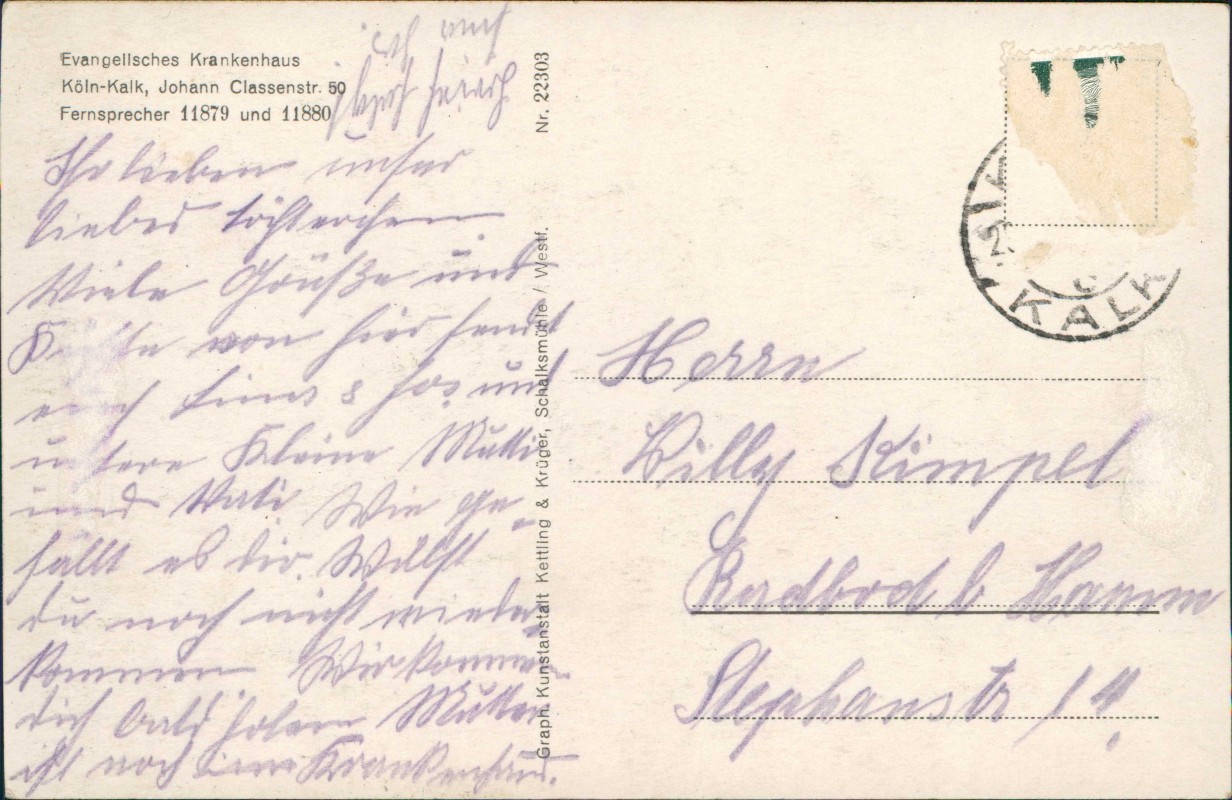 Evangelisches Krankenhaus
Köln-Kalk, Johann Classenstr. 50
Fernsprecher 11879 und 11880
Ihr lieben unser
liebes Töchterchen
Viele Grüße und
Küsse von hier sendet
euch und
unsere Kleine Mutti
und Vati Wie ge-
fällt es dir. Willst
du noch nicht wieder
kommen Wir kommen
dich bald holen Mutter
ist noch im Krankenhaus.
Nr. 22303
Graph. Kunstanstalt Kettling & Krüger, Schalksmühle / Westf.
KALK
Herrn
Willy Kimpel
Radbod b Hamm
Stephanstr 14